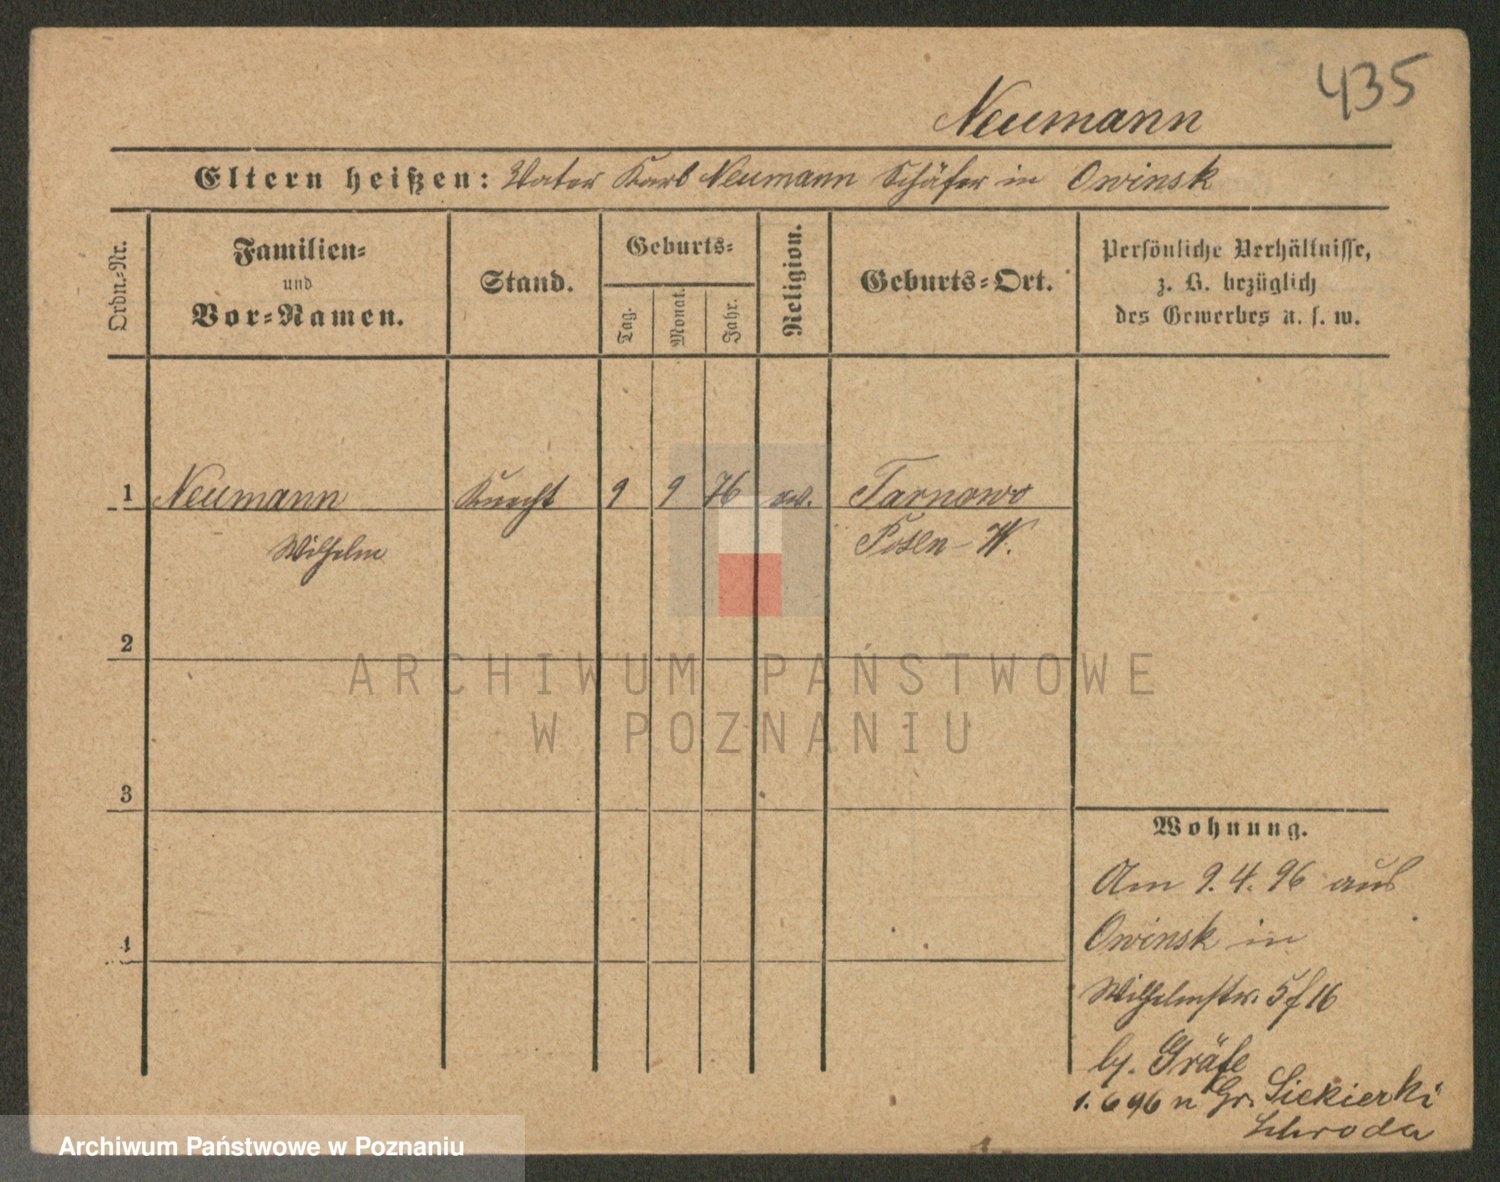 435
Neumann
Eltern heißen: Vater Karl Neumann Schäfer in Owinsk
Ordn.-Nr.
Familien-
und
Vor-Namen.
Stand.
Geburts-
Tag.
Monat.
Jahr.
Religion.
Geburts-Ort.
Persönliche Verhältnisse,
z. B. bezüglich
des Gewerbes u. s. w.
1 Neumann Knecht 9 9 76 ev. Tarnowo
Wilhelm Posen-W.
2
3
4
Wohnung.
Am 9.4.96 aus
Owinsk in
Wilhelmstr. 5 f 16
by. Gräfe
1.6 96 n Gr. Siekierki
Schroda
ARCHIWUM PAŃSTWOWE
W POZNANIU
Archiwum Państwowe w Poznaniu